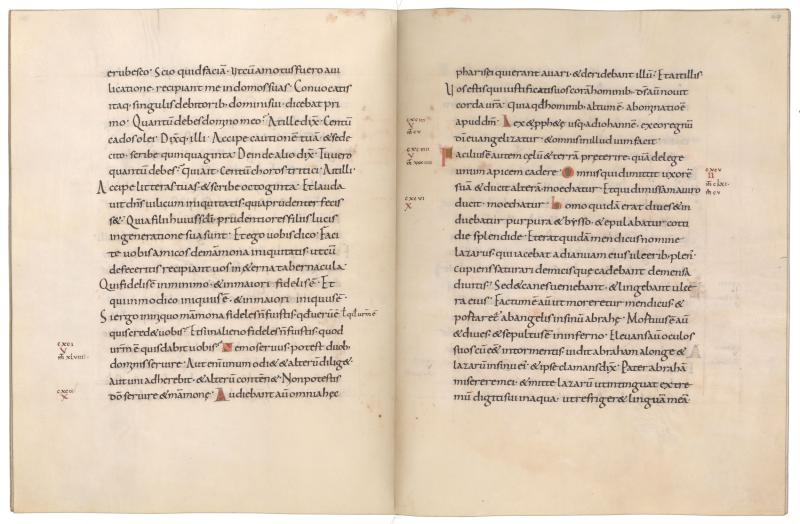 erubesco. Scio quid faciā. Ut cū amotus fuero a uil
licatione. recipiant me in domos suas. Conuocatis
itaq. singulis debitorib. domini sui. dicebat pri
mo. Quantū debes domno meo. At ille dix. Centū
cados olei. Dixq. illi. Accipe cautionē tuā. & sede
cito. scribe quinquaginta. Deinde alio dix. Tu uero
quantū debes. Qui ait. Centū choros tritici. Ait illi.
Accipe litteras tuas. & scribe octoginta. Et lauda
uit dn̄s uilicum iniquitatis. quia prudenter fecis
s&. Quia filii huius scli. prudentiores filiis lucis
in generatione sua sunt. Et ego uobis dico. Faci
te uobis amicos de mamona iniquitatis. ut cū
defeceritis recipiant uos in &erna tabernacula.
Qui fidelis ē in minimo. & in maiori fidelis ē. Et
qui in modico iniquus ē. & in maiori iniquus ē.
Si ergo in iniquo mamona fideles n̄ fuistis. qd uerū ē
quis cred& uobis. Et si in alieno fideles n̄ fuistis. quod
urm̄ ē quis dabit uobis. Nemo seruus potest duob.
dominis seruire. Aut enī unum odi&. & alterū dilig&.
aut uni adherebit. & alterū contēn&. Non potestis
do seruire & mamone. Audiebant aū omnia hec
cxci
v
m̄ xlviii
cxcii
x
49
pharisei qui erant auari. & deridebant illū. Et ait illis
Uos estis qui iustificatis uos corā hominib. ds aū nouit
corda urā. Quia qd hominib. altum ē. abominatio ē
apud dm̄. Lex & pph&ę usq. ad iohannē. ex eo regnū
di euangelizatur. & omnis in illud uim facit.
Facilius ē autem cęlū & terrā preterire. quā de lege
unum apicem cadere. Omnis qui dimittit uxorē
suā & ducit alterā moechatur. Et qui dimissam a uiro
ducit. moechatur. Homo quidā erat diues & in
duebatur purpura & bysso. & epulabatur coti
die splendide. Et erat quidā mendicus nomine
lazarus. qui iacebat ad ianuam eius ulcerib. plen.
cupiens saturari de micis que cadebant de mensa
diuitis. Sed & canes ueniebant. & lingebant ulce
ra eius. Factum ē aū ut moreretur mendicus. &
portar&. ab angelis in sinū abrahę. Mortuus ē aū
& diues. & sepultus ē in inferno. Eleuans aū oculos
suos cū ē& in tormentis. uidit abraham a longe. &
lazarū in sinu ei. & ipse clamans dix. Pater abrahā
miserere mei. & mitte lazarū ut intinguat extre
mū digiti sui in aqua. ut refriger& linguā meā.
cxciii
v
cxciiii
v
cxcv
ii
cxcvi
x